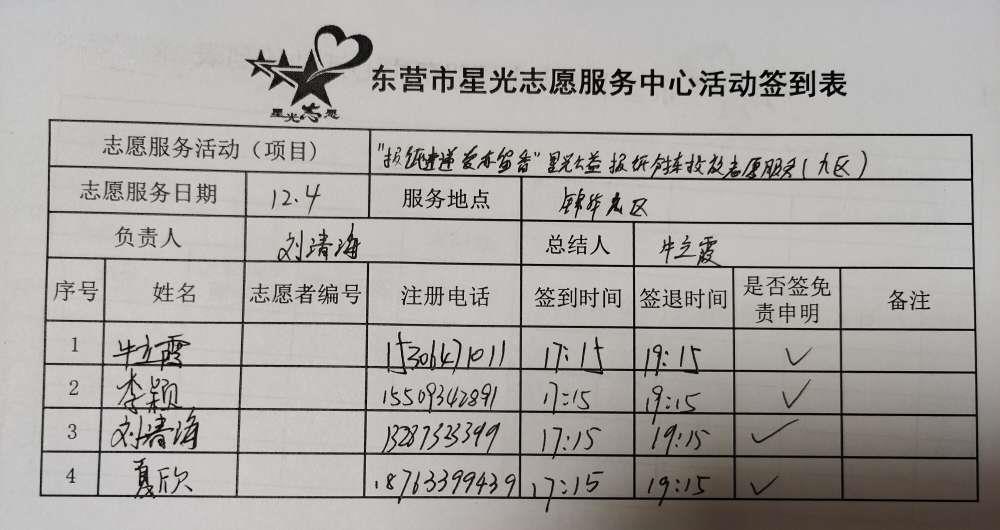 星光志愿
东营市星光志愿服务中心活动签到表
志愿服务活动（项目） "报纸速递 爱亦留香"星光公益报纸 投放志愿服务（九区）
志愿服务日期 12.4 服务地点 锦华九区
负责人 刘清海 总结人 牛立霞
序号 姓名 志愿者编号 注册电话 签到时间 签退时间 是否签免责申明 备注
1 牛立霞 15306471011 17:15 19:15 ✓
2 李颖 15509342891 17:15 19:15 ✓
3 刘清海 13287333399 17:15 19:15 ✓
4 夏欣 18763399439 17:15 19:15 ✓